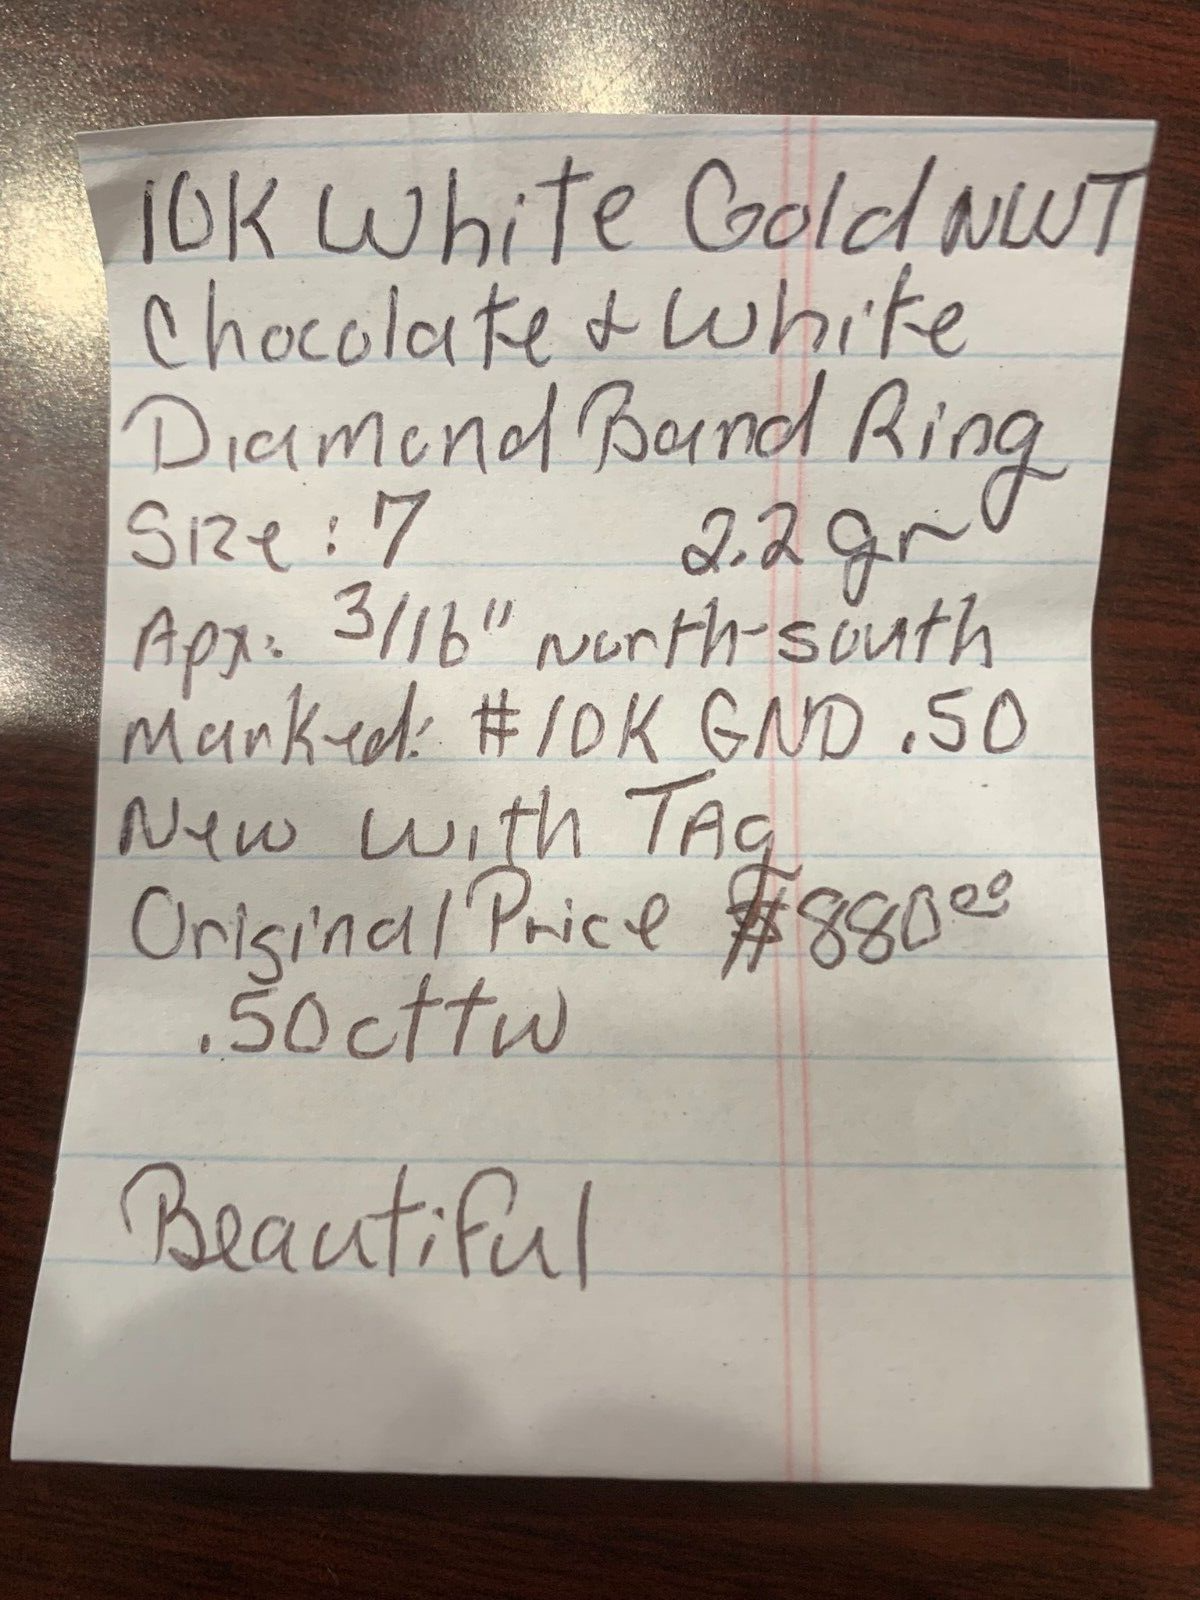 10K White Gold NWT
Chocolate & White
Diamond Band Ring
Size: 7 2.2 gr
Apx: 3/16" north-south
Marked: #10K GND .50
New with TAg
Original Price $880.00
.50cttw
Beautiful